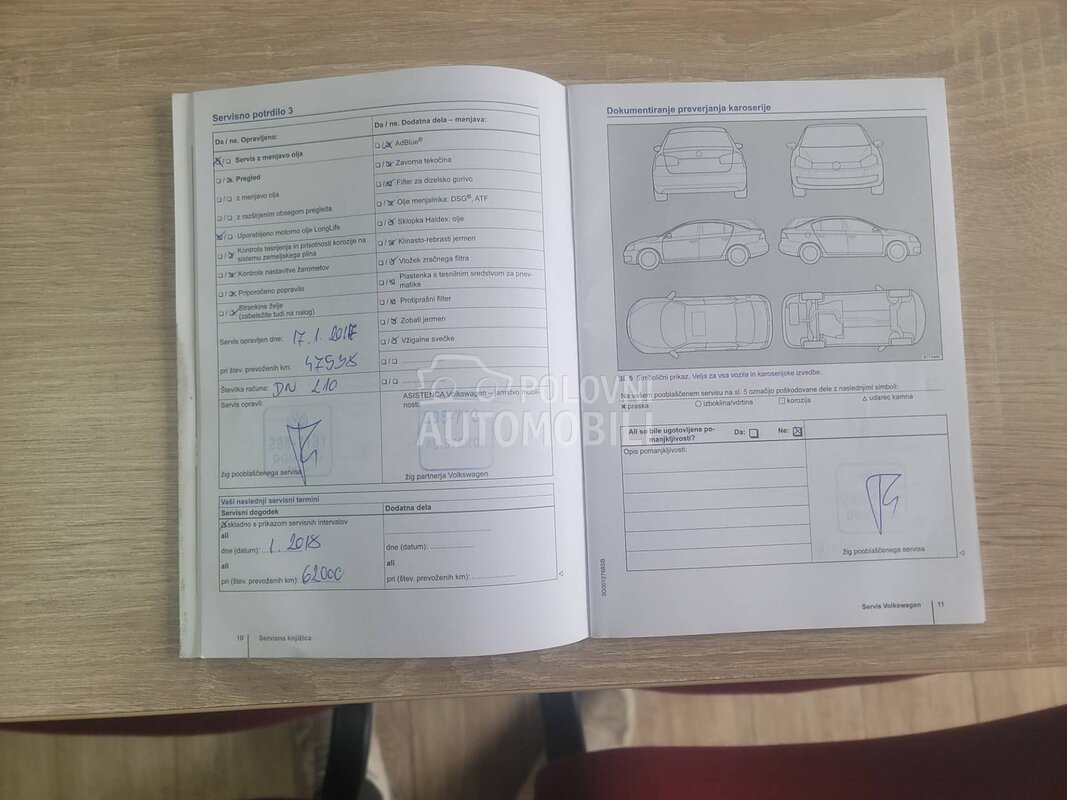 Servisno potrdilo 3
Da / ne. Opravljeno:
Servis z menjavo olja
Pregled
z menjavo olja
z razširjenim obsegom pregleda
Uporabljeno motorno olje LongLife
Kontrola tesnjenja in prisotnosti korozije na
sistemu zemeljskega plina
Kontrola nastavitve žarometov
Priporočeno popravilo
Strankine želje
(zabeležite tudi na nalog)
Servis opravljen dne: 17. 1. 2017
pri štev. prevoženih km: 47538
Številka računa: DN 210
Servis opravil:
žig pooblaščenega servisa
Da / ne. Dodatna dela – menjava:
AdBlue®
Zavorna tekočina
Filter za dizelsko gorivo
Olje menjalnika: DSG®, ATF
Sklopka Haldex: olje
Klinasto-rebrasti jermen
Vložek zračnega filtra
Plastenka s tesnilnim sredstvom za pnev-
matike
Protiprašni filter
Zobati jermen
Vžigalne svečke
ASISTENCA Volkswagen – jamstvo mobil-
nosti:
žig partnerja Volkswagen
Vaši naslednji servisni termini
Servisni dogodek
skladno s prikazom servisnih intervalov
ali
dne (datum): 1. 2018
ali
pri (štev. prevoženih km): 62000
Dodatna dela
dne (datum):
ali
pri (štev. prevoženih km):
10 Servisna knjižica
POLOVNI
AUTOMOBILI
Dokumentiranje preverjanja karoserije
Sl. 5 Simbolični prikaz. Velja za vsa vozila in karoserijske izvedbe.
Na vašem pooblaščenem servisu na sl. 5 označijo poškodovane dele z naslednjimi simboli:
x praska ○ izboklina/vdrtina □ korozija △ udarec kamna
Ali so bile ugotovljene po-
manjkljivosti?
Da: Ne:
Opis pomanjkljivosti:
žig pooblaščenega servisa
Servis Volkswagen 11